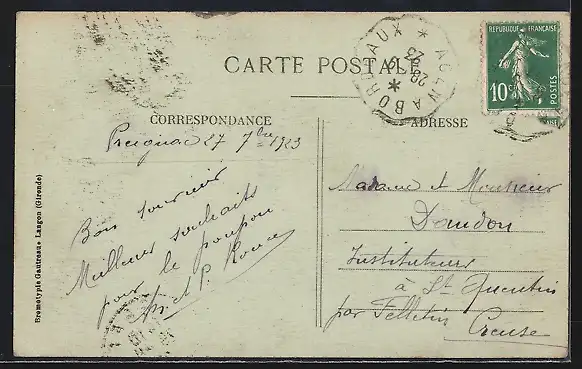 CARTE POSTALE
AGEN A BORDEAUX
28 - 9
23
RÉPUBLIQUE FRANÇAISE
10c
POSTES
CORRESPONDANCE
ADRESSE
Preignac 27 7bre 1923
Bon souvenir
Meilleurs souhaits
pour le poupon
Madame et Monsieur
Daudon
Instituteurs
à St Quentin
par Felletin
Creuse
Bromotypie Gautreau - Langon (Gironde)